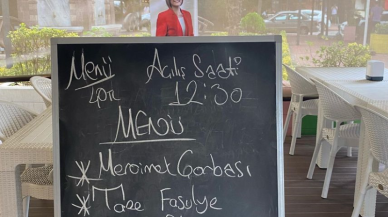 Menü Açılış Saati
12:30
MENÜ
* Mercimek Çorbası
* Taze Fasulye